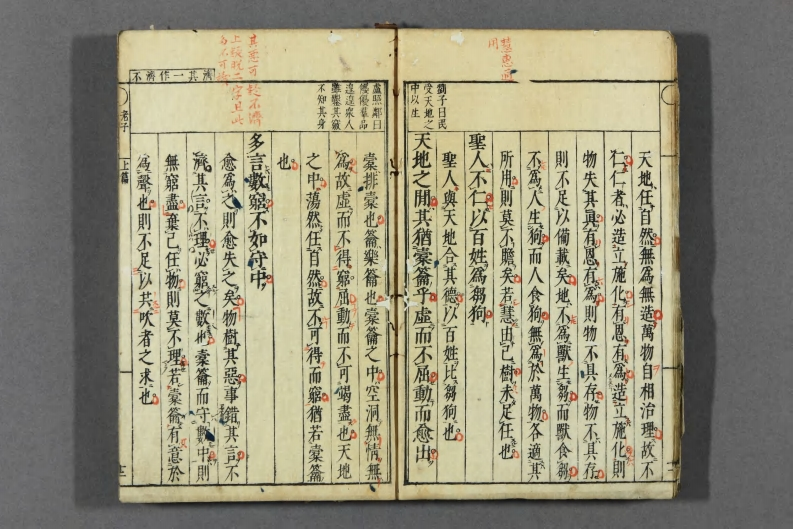 慧惠通
用
劉子曰民
受天地之
中以生
天地任自然無爲無造萬物自相治理故不
仁仁者必造立施化有恩有爲造立施化則
物失其眞有恩有爲則物不具存物不具存
則不足以備載矣地不爲獸生芻而獸食芻
不爲人生狗而人食狗無爲於萬物各適其
所用則莫不贍矣若慧由己樹未足任也
聖人不仁以百姓爲芻狗
聖人與天地合其德以百姓比芻狗也
天地之間其猶橐籥乎虛而不屈動而愈出
盧照鄰曰
橐排橐也籥樂籥也橐籥之中空洞無情無
爲故虛而不得窮屈動而不可竭盡也天地
之中蕩然任自然故不可得而窮猶若橐籥
也
多言數窮不如守中
愈爲之則愈失之矣物樹其惡事錯其言不
濟其言不理必窮之數也橐籥而守數中則
無窮盡棄己任物則莫不理若橐籥有意於
爲聲也則不足以共吹者之求也
濟其一作濟不
老子
上篇